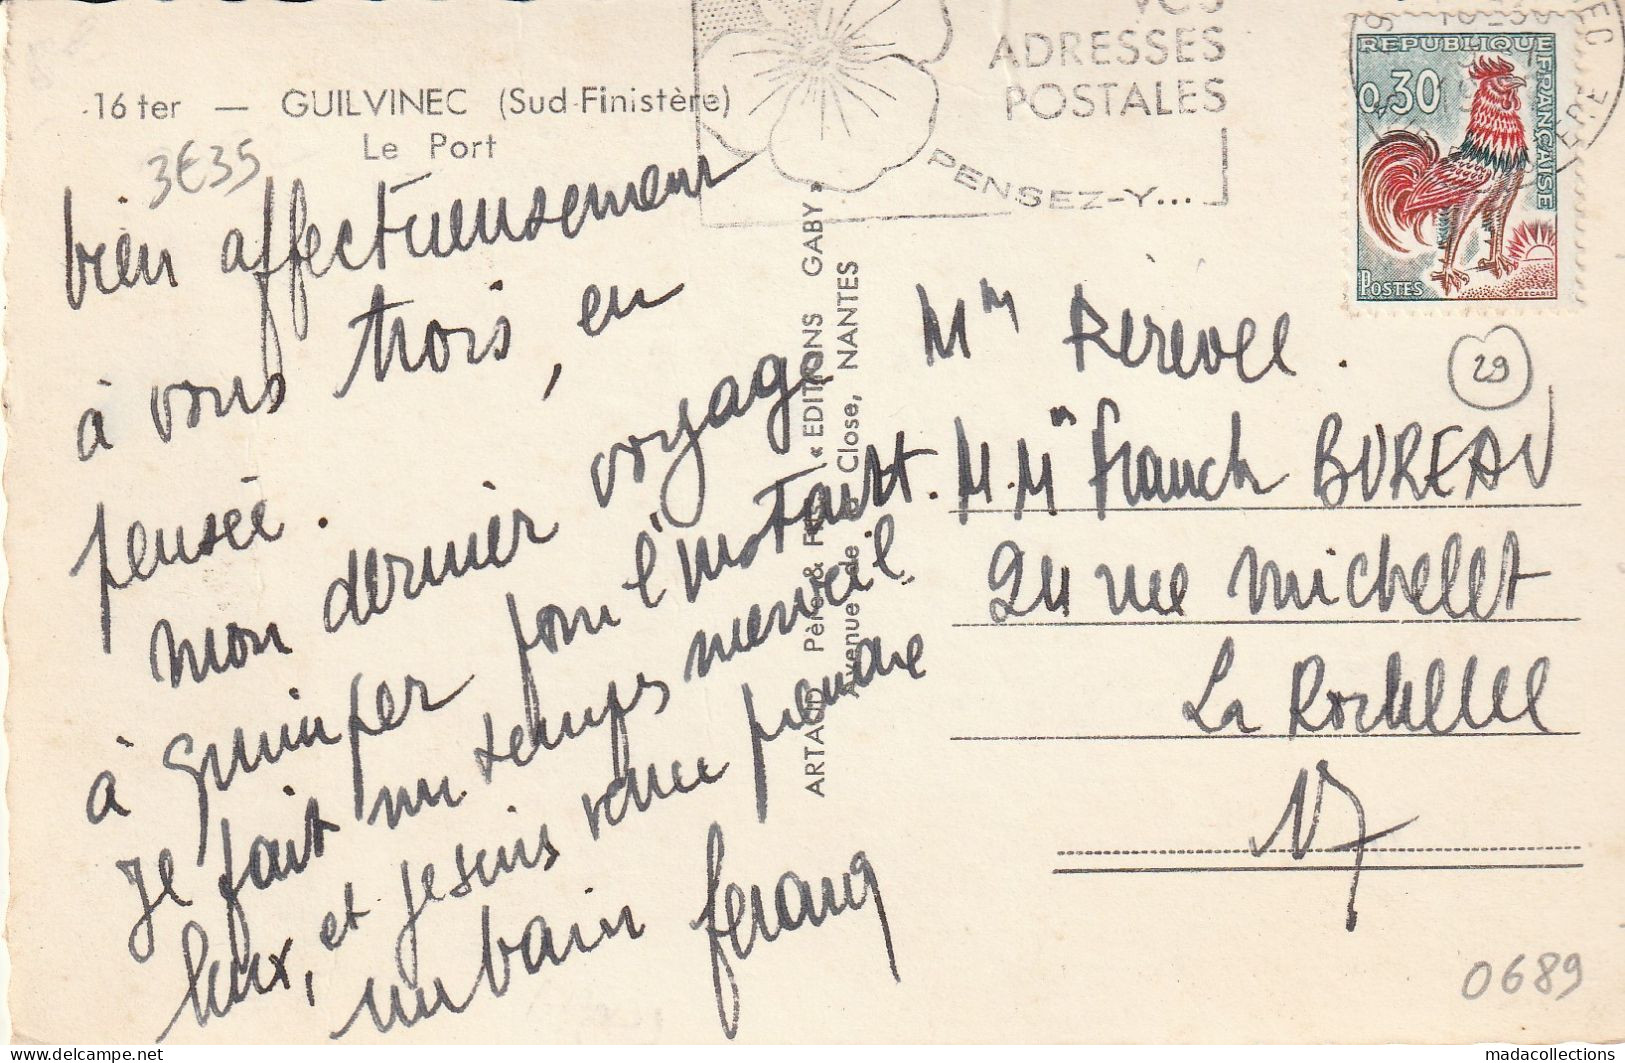 16 ter — GUILVINEC (Sud-Finistère)
Le Port
3€35
bien affectueusement
à vous trois, en
pensée.
mon dernier voyage
à Quimper pour l'instant.
Je fait un temps merveil
leux, et je suis venu prendre
un bain
ARTAUD Père & « EDITIONS GABY »
Avenue de Close, NANTES
VOS
ADRESSES
POSTALES
PENSEZ-Y...
REPUBLIQUE FRANÇAISE
0,30
POSTES
DECARIS
29
Mm
M. Mm Franck BUREAU
24 rue Michelet
La Rochelle
17
0689
delcampe.net
madacollections